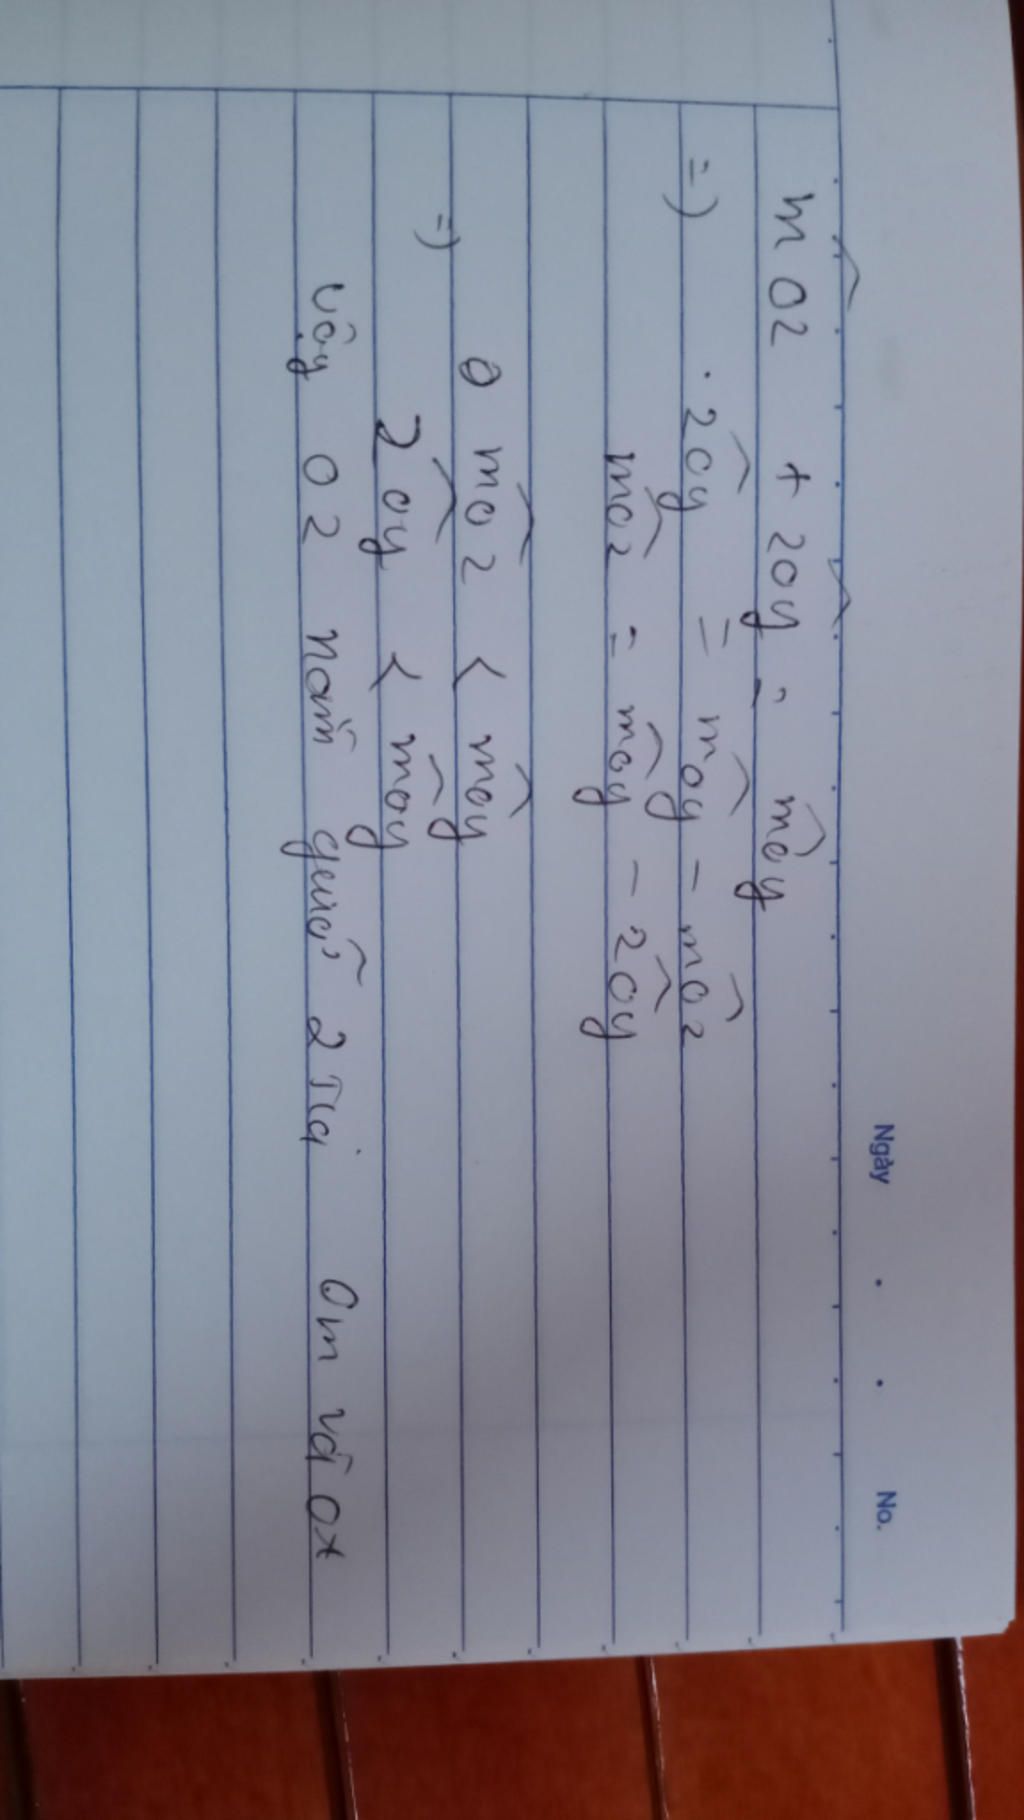 Ngày . . No.
m̂oz + zôy = môy
=) . zôy = môy - môz
môz = môy - zôy
0 môz < môy
=) zôy < môy
vậy oz nằm giữa 2 Tia Om và Ox